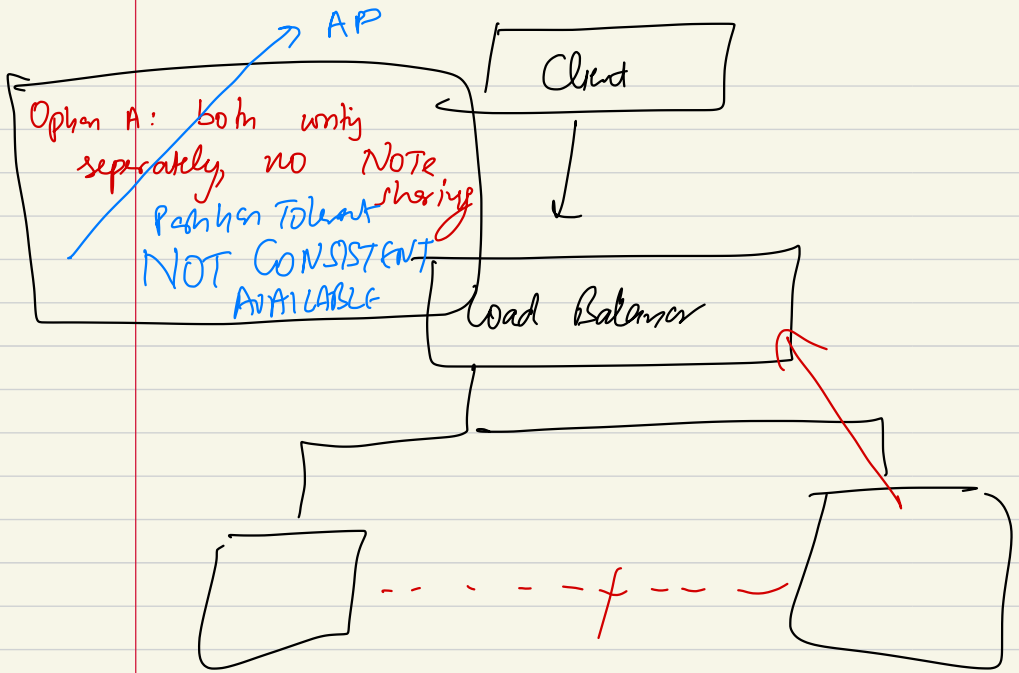 AP
Client
Option A: both writing
seperately, no NOTE
sharing
Partition Tolerant
NOT CONSISTENT
AVAILABLE
Load Balancer